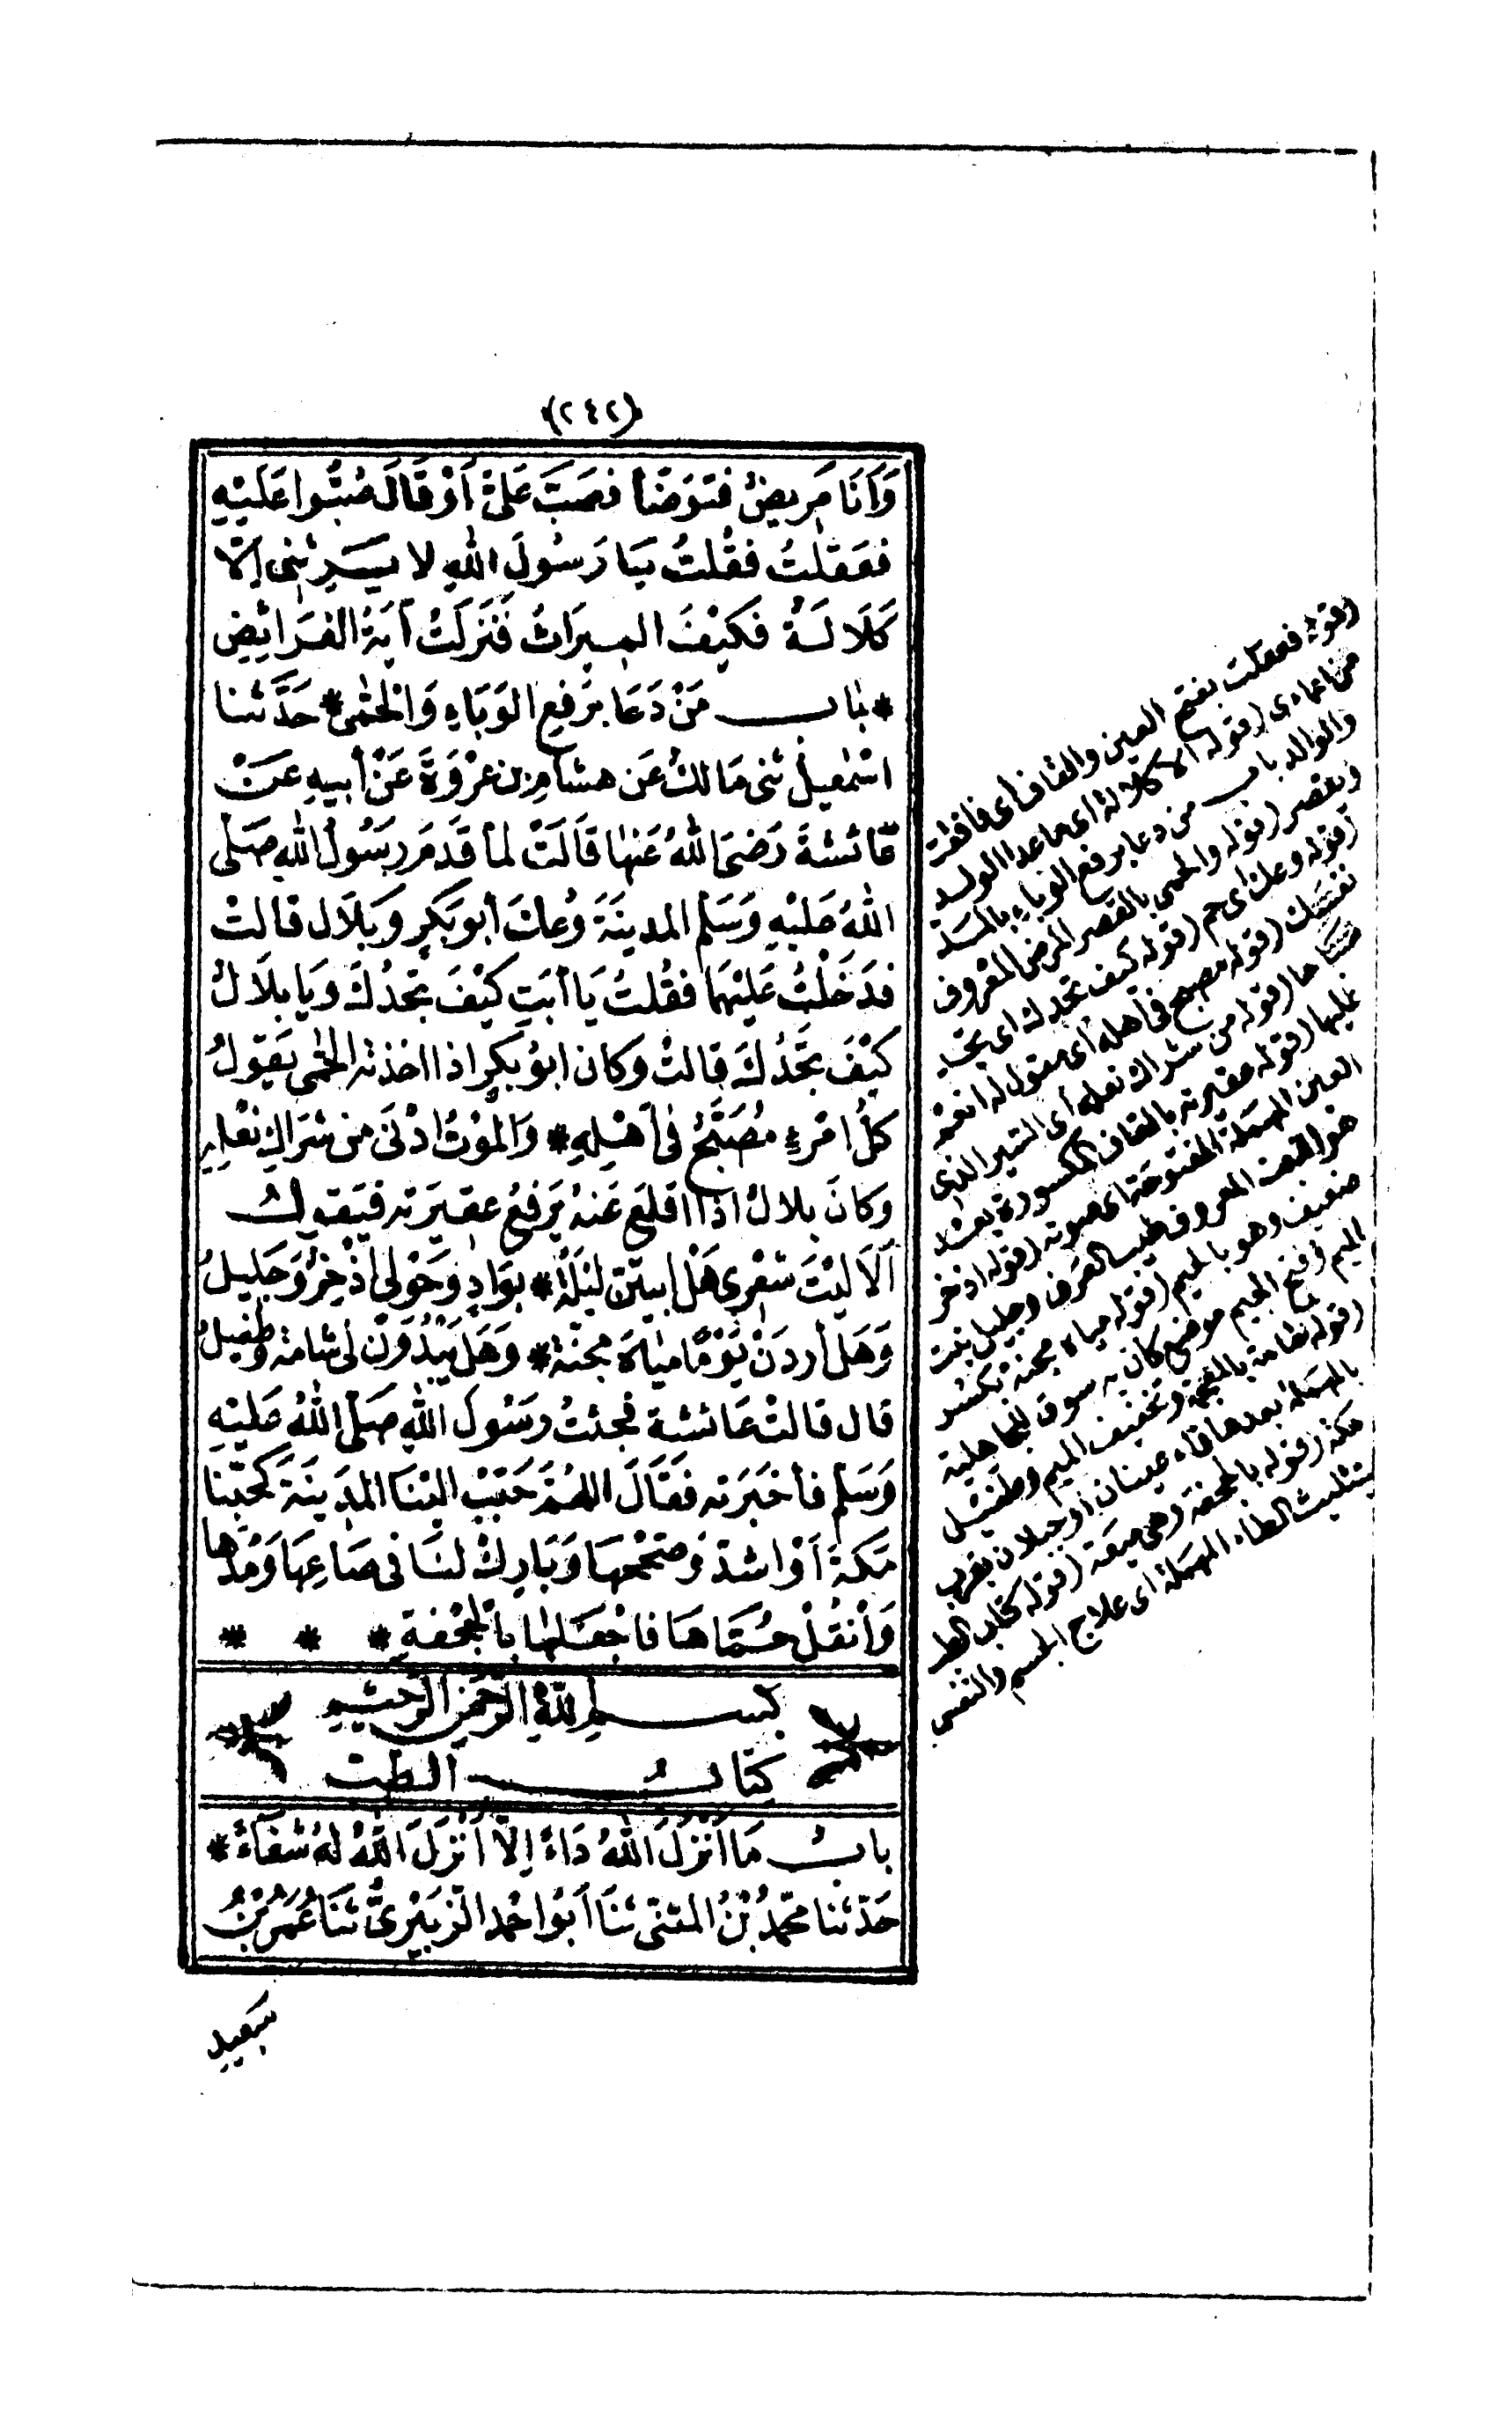 (٢٤٢)
وَأَنَا مَرِيضٌ فَتَوَضَّأَ فَصَبَّ عَلَيَّ أَوْ قَالَ صُبُّوا عَلَيْهِ
فَعَقَلْتُ فَقُلْتُ يَا رَسُولَ اللهِ لا يَرِثُنِى إِلَّا
كَلَالَةٌ فَكَيْفَ المِيرَاثُ فَنَزَلَتْ آيَةُ الفَرَائِضِ
* باب مَنْ دَعَا بِرَفْعِ الوَبَاءِ وَالْحُمَّى * حَدَّثنا
اسْمٰعيلُ ثنى مَالكٌ عَن هشامِ بن عُرْوَةَ عَنْ أبيهِ عَنْ
عَائشةَ رَضىَ اللهُ عَنهٰا قَالَتْ لما قَدِمَ رَسُولُ اللهِ صَلّى
اللهُ عَلَيْهِ وَسَلم المدينَةَ وُعِكَ أبو بَكرٍ وبَلَال قالتْ
فدَخَلْتُ عَلَيْهِمَا فقُلتُ يَا أبَتِ كَيْفَ تَجدُكَ وَيَا بلَالُ
كَيْفَ تَجدُكَ قالتْ وكان ابو بَكرٍ اذا اخذته الحمى يَقولُ
كلُّ امْرِءٍ مُصَبَّحٌ فى أهْلِهِ * وَالموْتُ ادْنَى من شرَاكِ نعْلِهِ
وَكانَ بلالٌ اذا اقلعَ عَنهُ يَرفعُ عقيرَته فيَقولُ
أَلَا ليْتَ شعْرى هَلْ ابيتَن ليْلَةً * بوَادٍ وَحَوْلى اذْخِرٌ وَجَليلُ
وَهَل أردَنْ يَوْمًا ميَاهَ مجنّة * وَهَل يَبْدُوَنْ لى شامة وَطَفيلُ
قال قالتْ عَائشة فجئتُ رسَولَ اللهِ صَلى اللهُ عَليْهِ
وَسَلم فأخبَرَته فقَالَ اللهُمَّ حَبّبْ اليْنَا المدِينَةَ كَحُبِّنا
مَكةَ أوْ اشدَّ وَصَحّحهَا وَبَارِكْ لنَا فى صَاعِهَا وَمُدّها
وَانْقُلْ حُمَّاهَا فاجْعَلهٰا بالْجُحْفةِ * * *
بسم اللهِ الرَّحمنِ الرَّحيم
كتَابُ الطب
بابُ مَا أَنْزَلَ اللهُ دَاءً إِلَّا أَنْزَلَ اللهُ لهُ شفَاءً *
حَدّثنا محمدُ بْنُ المثنى ثنَا أَبُو احْمد الزبَيْرىُّ ثنَا عُمَرُ بْنُ
سَعيدِ
(قوله فعقلت بفتح العين والقاف أى فافقت
من اغماءى (قوله الا كلالة اى ما عدا الولد
والوالد باب من دعا برفع الوباء بالمد
ويقصر (قوله والحمى بالقصر المرض المعروف
(قوله وعك اى حم (قوله كيف تجدك اى تجد
نفسك (قوله مصبح فى أهله أى مقول له انعم
صباحا (قوله من شراك نعله أى السير الذى
عليها (قوله عقيرته بالقاف المكسورة بعد
العين المهملة المفتوحة اى صوته (قوله اذخر
هو الحشيش المعروف طيب العرف وجليل نبت
ضعيف وهو بالجيم (قوله مياه مجنة بكسر
الميم وفتح الجيم موضع كان به سوق للجاهلية
(قوله شامة بالمعجمة وتخفيف الميم وطفيل
بالمهملة بعدها فاء عينان أو جبلان بقرب
مكة (قوله بالجحفة وهى مهيعة (قوله كتاب الطب
بتثليث الطاء المهملة اى علاج الجسم والنفس